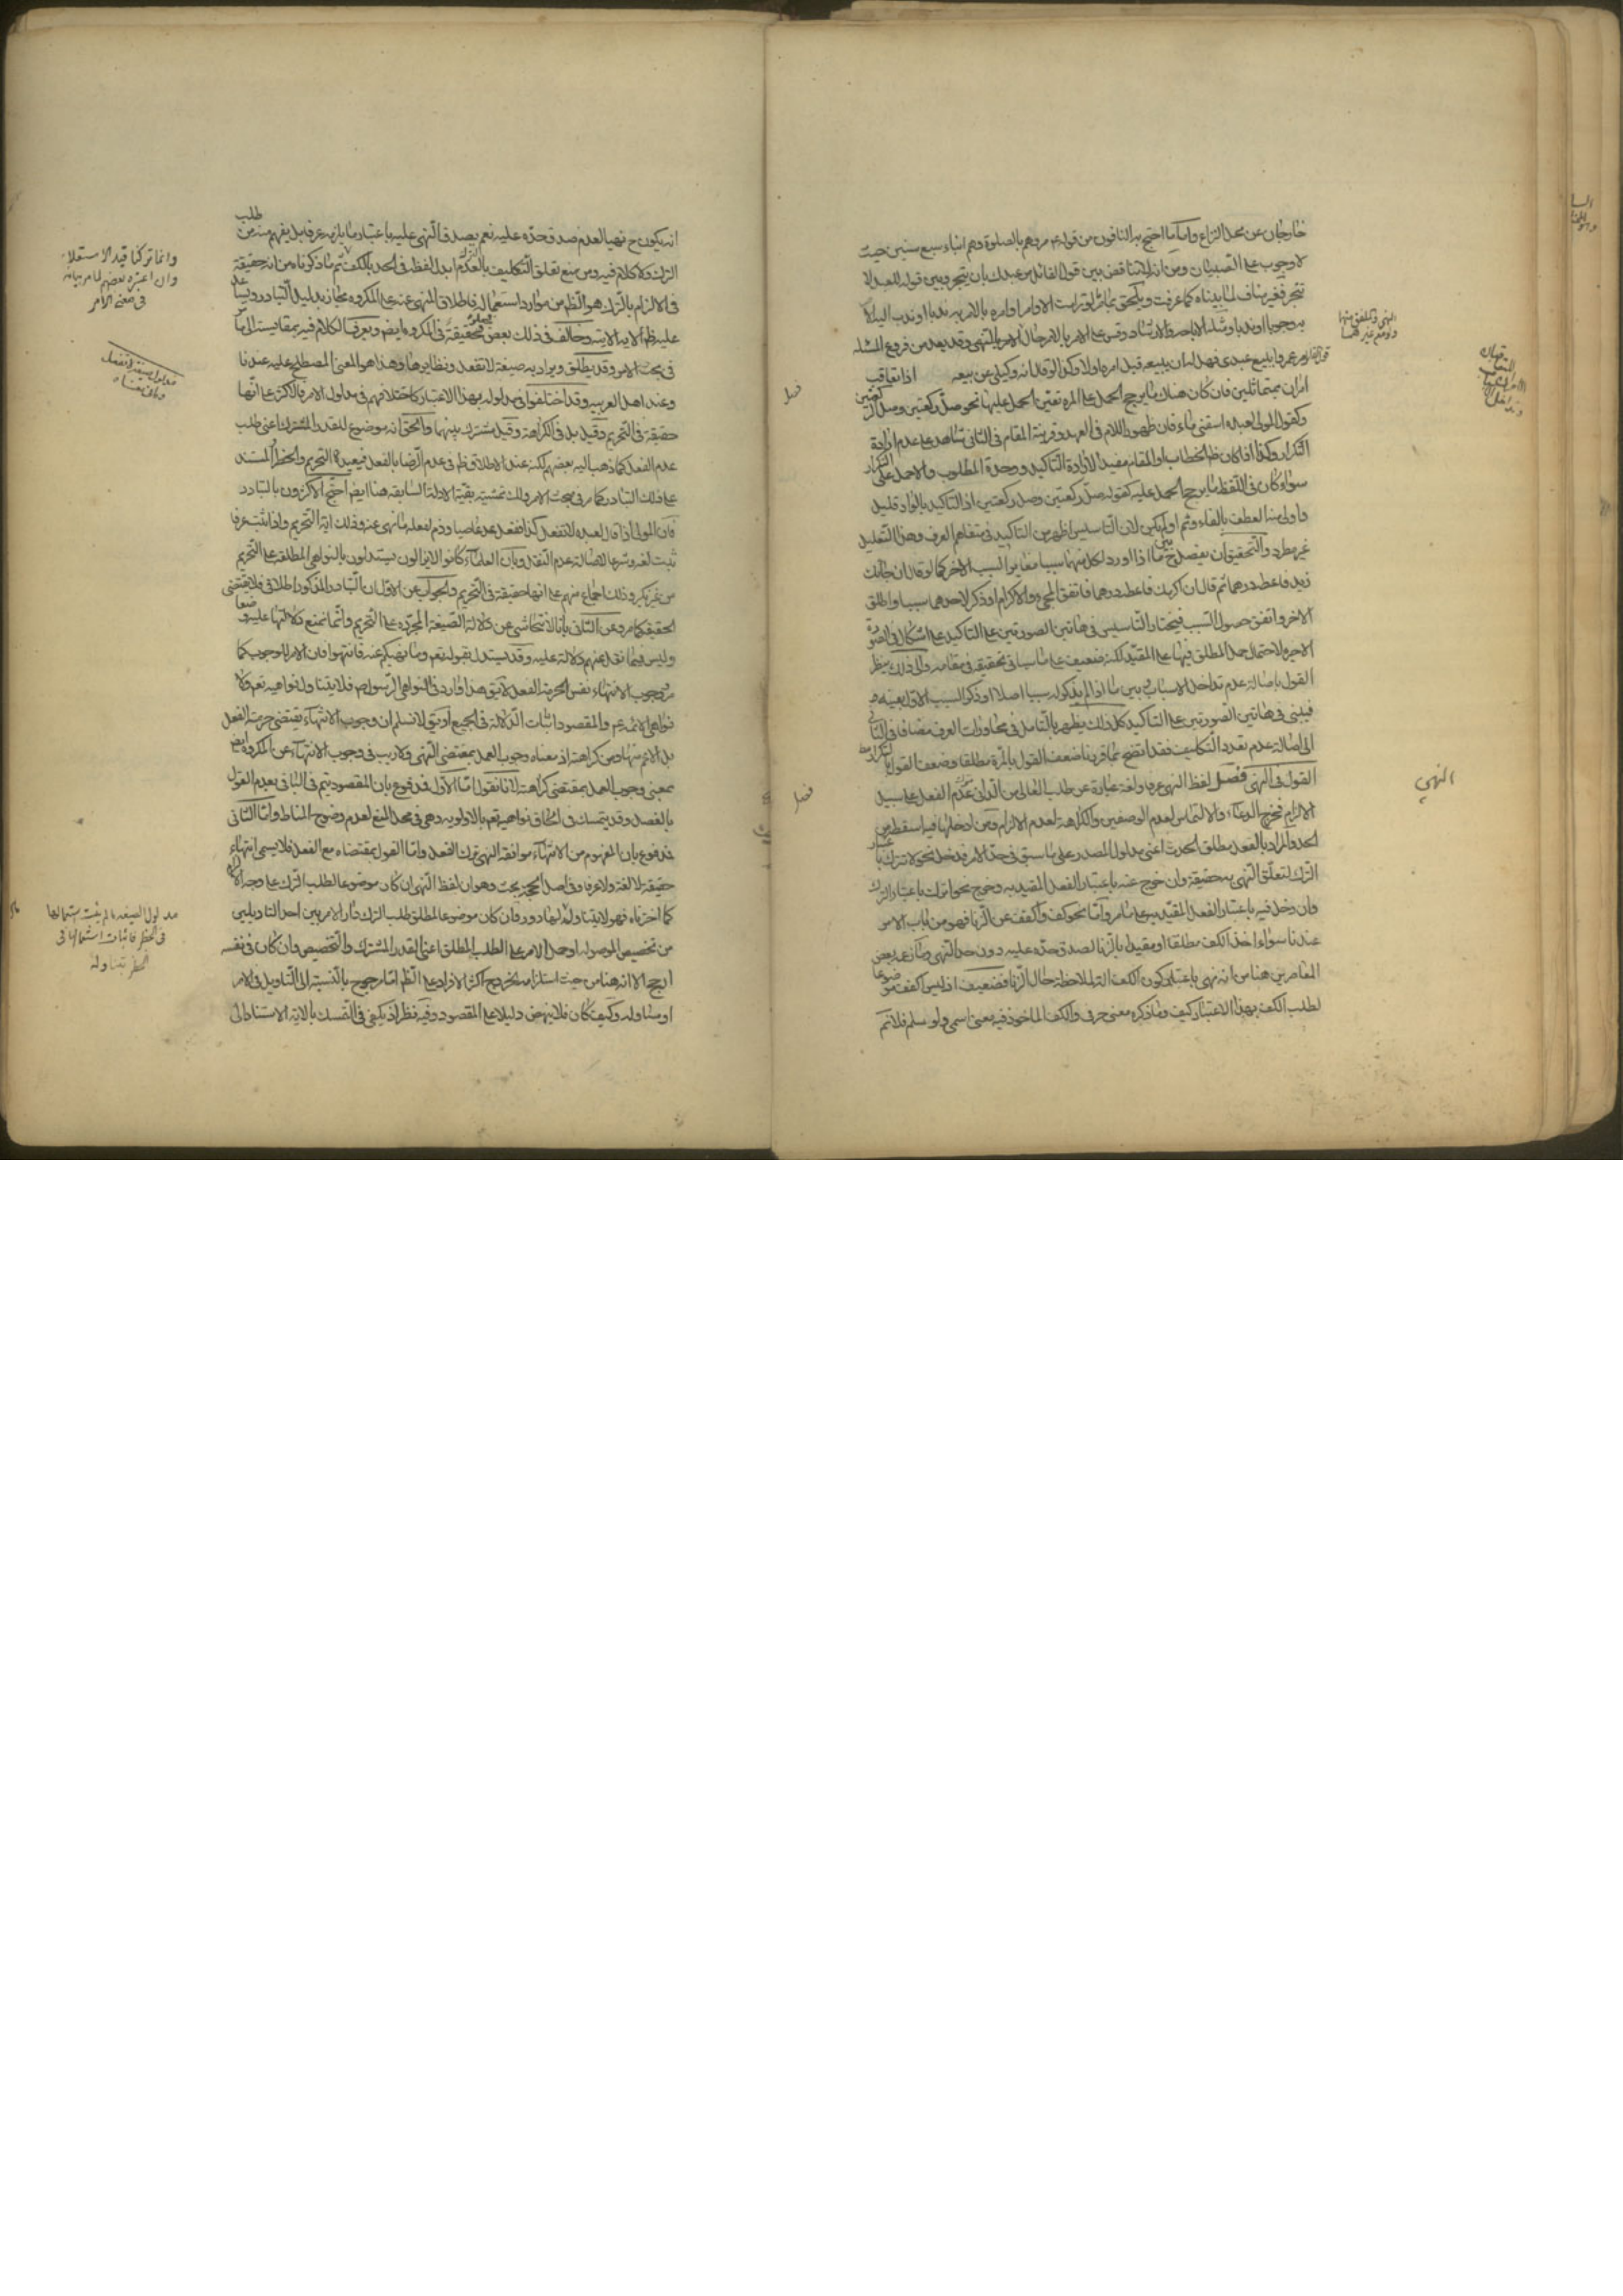 خارجان عن محل النزاع واما ما احتج به النافون من قوله ع مروهم بالصلوة وهم ابناء سبع سنين حيث
لا وجوب على الصبيان ومن انه لا تناقض بين قول القائل مر عبدك بان يتجر وبين قوله للعبد لا
تتجر فغير مناف لما بيناه كما عرفت ويلحق بما مر لو تراءت الاوامر اوامره بالامر به ندبا او ندب اليه
به وجوبا او ندبا ومثله الاباحة والارشاد وقس على الامر بالامر حال الامر بالنهى وقد يعد من فروع المسئلة
عمروا ببيع عبدى فهل له ان يبيعه قبل امره او لا وكذا لو قال انه وكيلى عن بيعه اذا تعاقب
امران بمتماثلين فان كان هناك ما يرجح الحمل على المرة تعين الحمل عليها نحو صل ركعتين وصل الركعتين
وكقول المولى لعبده اسقنى ماء فان ظهور اللام فى العهد وقرينة المقام فى الثانى شاهد على عدم ارادة
التكرار وكذا اذا كان ظ الخطاب او المقام مفيدا لارادة التاكيد ووحدة المطلوب والا حمل على التكرار
سواء كان فى اللفظ ما يرجح الحمل عليه كقوله صل ركعتين وصل ركعتين اذ التاكيد بالواو قليل
واولى منه العطف بالفاء وثم او لم يكن لان التاسيس اظهر من التاكيد فى متفاهم العرف وهذا التعليل
غير مطرد والتحقيق ان يفصل ح بين ما اذا اورد لكل منهما سببا مغايرا لسبب الاخر كما لو قال ان جائك
زيد فاعطه درهما ثم قال ان اكرمك فاعطه درهما فاتفق المجىء والاكرام او ذكر لاحدهما سببا واطلق
الاخر واتفق حصول السبب فيختار التاسيس فى هاتين الصورتين على التاكيد على اشكال فى الصورة
الاخيرة لاحتمال حمل المطلق فيها على المقيد لكنه ضعيف على ما سياتى تحقيقه فى مقامه والى ذلك ينظر
القول باصالة عدم تداخل الاسباب وبين ما اذا لم يذكر له سببا اصلا او ذكر السبب الاول بعينه
فيبنى فى هاتين الصورتين على التاكيد كل ذلك يظهر بالتامل فى محاورات العرف مضافا فى الثانى
الى اصالة عدم تعدد التكليف فقد اتضح مما قررنا ضعف القول بالمرة مطلقا وضعف القول بالتكرار مط
القول فى النهى فصل لفظ النهى عرفا ولغة عبارة عن طلب العالى من الدانى عدم الفعل على سبيل
الالزام فخرج الدعاء والالتماس لعدم الوصفين والكراهة لعدم الالزام ومن ادخلها فيه اسقطه من
الحد والمراد بالفعل مطلق الحدث اعنى مدلول المصدر على ما سبق فى حد الامر فدخل نحو لا تترك باعتبار
الترك لتعلق النهى به حقيقة وان خرج عنه باعتبار الفعل المقيد به وخرج نحو اترك باعتبار الترك
وان دخل فيه باعتبار الفعل المقيد به على ما مر واما نحو كف واكفف عن الزنا فهو من باب الامر
عندنا سواء اخذ الكف مطلقا او مقيدا بالزنا لصدق حده عليه دون حد النهى وما زعمه بعض
المعاصرين هنا من انه نهى باعتبار كون الكف الة لملاحظة حال الزنا فضعيف اذ ليس اكفف موضوعا
لطلب الكف بهذا الاعتبار كيف وما ذكره معنى حرفى والكف الماخوذ فيه معنى اسمى ولو سلم فلا نم
النهى
فصل
فصل
انه يكون ح نهيا لعدم صدق حده عليه نعم يصدق النهى عليه باعتبار ما يلزمه عرفا بل يفهم منه من طلب
الترك ولا كلام فيه ومن منع تعلق التكليف بالعدم ابدل لفظ فى الحد بالكف ثم ما ذكرناه من انه حقيقة
فى الالزام بالترك هو الظ من موارد استعماله فاطلاق المنهى عنه على المكروه مجاز بدليل التبادر ويساعد
عليه ظ الاية الاتية وخالف فى ذلك بعض فجعله حقيقة فى المكروه ايض ويعرف الكلام فيه بمقايسته الى ما مر
فى بحث الامر وقد يطلق ويراد به صيغة لا تفعل ونظايرها وهذا هو المعنى المصطلح عليه عندنا
وعند اهل العربية وقد اختلفوا فى مدلوله بهذا الاعتبار كاختلافهم فى مدلول الامر فالاكثر على انها
حقيقة فى التحريم وقيل بل فى الكراهة وقيل مشترك بينهما والحق انه موضوع للقدر المشترك اعنى طلب
عدم الفعل كما ذهب اليه بعضهم لكنه عند الاطلاق ظ فى عدم الرضا بالفعل فيفيد التحريم والحظر المستند
على ذلك التبادر كما مر فى بحث الامر ولك تمشية بقية الادلة السابقة هنا ايض احتج الاكثرون بالتبادر
فان المولى اذا قال لعبده لا تفعل كذا ففعل عد عاصيا وذم لفعله ما نهى عنه وذلك اية التحريم واذا ثبت عرفا
ثبت لغة وشرعا لاصالة عدم النقل وبان العلماء كانوا لا يزالون يستدلون بالنواهى المطلقة على التحريم
من غير نكير وذلك اجماع منهم على انها حقيقة فى التحريم والجواب عن الاول ان التبادر المذكور اطلاقى فلا يقتضى
الحقيقة كما مر وعن الثانى بانا لا نتحاشى عن دلالة الصيغة المجردة على التحريم وانما نمنع دلالتها عليه وضعا
وليس فيما نقل عنهم دلالة عليه وقد يستدل بقوله تعم وما نهيكم عنه فانتهوا فان الامر للوجوب كما
مر ووجوب الانتهاء نفس الحرمة الفعل لا يق هذا وارد فى النواهى الرسول ص فلا يتناول نواهيه تعم ولا
نواهى الائمة ع والمقصود اثبات الدلالة فى الجميع او يق لا نسلم ان وجوب الانتهاء يقتضى حرمة الفعل
بل الاعم منها ومن كراهته اذ معناه وجوب العمل بمقتضى النهى ولا ريب فى وجوب الانتهاء عن المكروه ايض
بمعنى وجوب العمل بمقتضى كراهته لانا نقول اما الاول فمدفوع بان المقصود يتم فى الباقى بعدم القول
بالفصل وقد يتمسك فى الحاق نواهيه تعم بالاولوية وهى فى محل المنع لعدم وضوح المناط واما الثانى
فمدفوع بان المفهوم من الانتهاء موافقة النهى بترك الفعل واما القول بمقتضاه مع الفعل فلا يسمى انتهاء
حقيقة لا لغة ولا عرفا وفى اصل الحجة بحث وهو ان لفظ النهى ان كان موضوعا لطلب الترك على وجه الالزام
كما اخترناه فهو لا يتناوله لها دور فان كان موضوعا لمطلق طلب الترك دار الامر بين احد التاويلين
من تخصيص الموصولة او حمل الامر على الطلب المطلق اعنى القدر المشترك والتخصيص وان كان فى نفسه
ارجح الا انه هنا من حيث استلزامه لخروج اكثر الافراد على الظ اما مرجوح بالنسبة الى التاويل فى الامر
او مساو له وكيف كان فلا ينهض دليلا على المقصود وفيه نظر اذ يكفى فى التمسك بالاية الاستناد الى
وانما تركنا قيد الاستعلاء
وان اعتبره بعضهم لما مر بيانه
فى معنى الامر
مدلول الصيغة ما لم يثبت استعمالها
فى الحظر فاثبات استعمالها فى
الحظر بتناوله